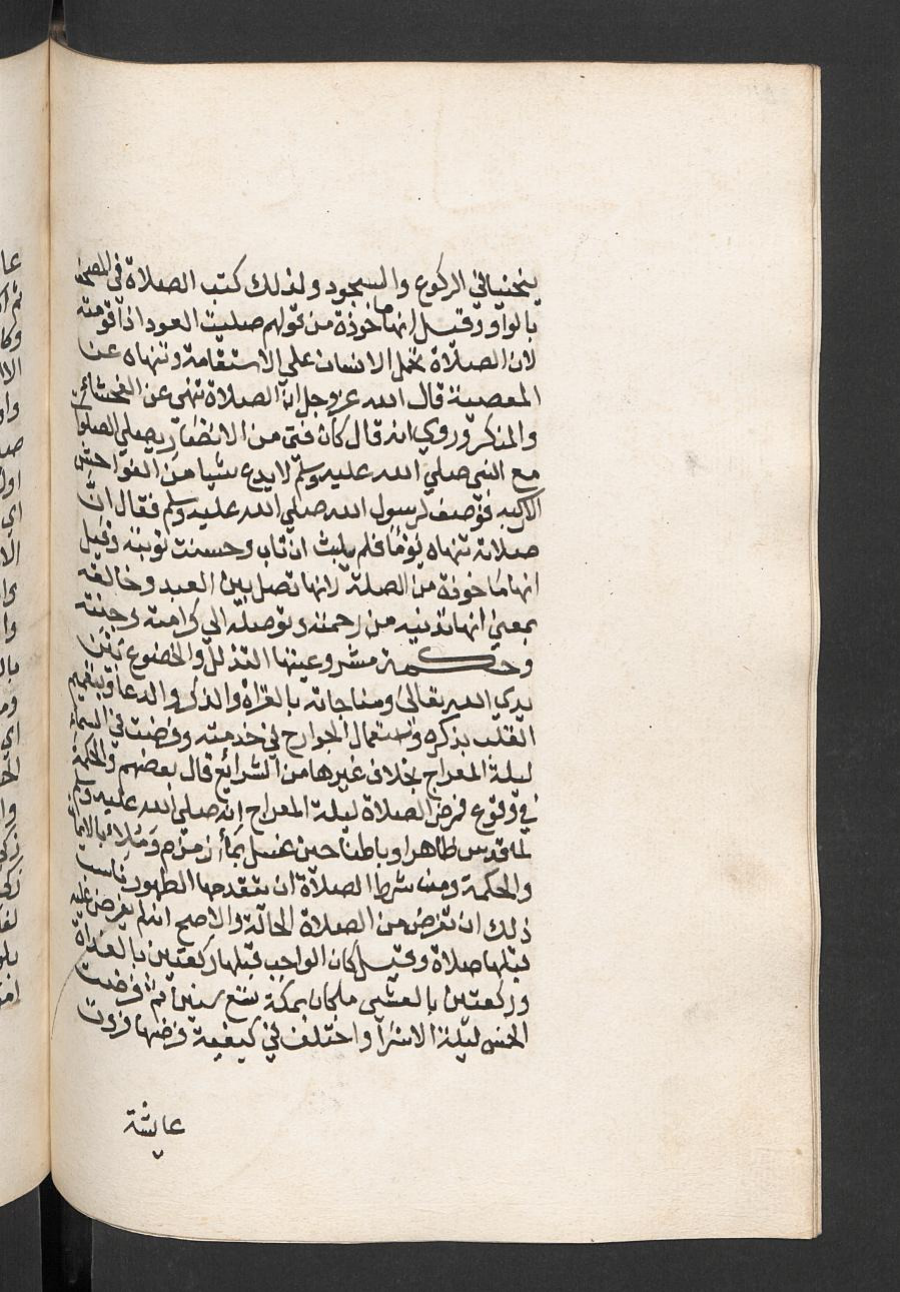 ينحنيان في الركوع والسجود ولذلك كتب الصلاة في المصحف
بالواو وقيل انها ماخوذة من قولهم صليت العود اذا قومته
لان الصلاة تحمل الانسان علي الاستقامة وتنهاه عن
المعصية قال الله عز وجل ان الصلاة تنهى عن الفحشاء
والمنكر وروي انه قال كان فتى من الانصار يصلي الصلوات
مع النبي صلي الله عليه وسلم لا يدع شيا من الفواحش
الا ركبه فوصف لرسول الله صلي الله عليه وسلم فقال ان
صلاته تنهاه يوما فلم يلبث ان تاب وحسنت توبته وقيل
انها ماخوذة من الصلة لانها تصل بين العبد وخالقه
بمعنى انها تدنيه من رحمته وتوصله الي كرامته وجنته
وحكمة مشروعيتها التذلل والخضوع بين
يدي الله تعالى ومناجاته بالقراة والذكر والدعا وتعمير
القلب بذكره واستعمال الجوارح في خدمته وفرضت في السماء
ليلة المعراج بخلاف غيرها من الشرائع قال بعضهم والحكمة
في وقوع فرض الصلاة ليلة المعراج انه صلى الله عليه وسلم
لما قدس ظاهرا وباطنا حين غسل بماء زمزم وملاء بالايمان
والحكمة ومن شرط الصلاة ان يتقدمها الطهور ناسب
ذلك ان تفرض من الصلاة الحالة والاصح انه لم يفرض عليه
قبلها صلاة وقيل كان الواجب قبلها ركعتين بالغداة
وركعتين بالعشي ملكان بمكة تسع سنين ثم فرضت
الخمس ليلة الاسرا واختلف في كيفية فرضها فروت
عايشة